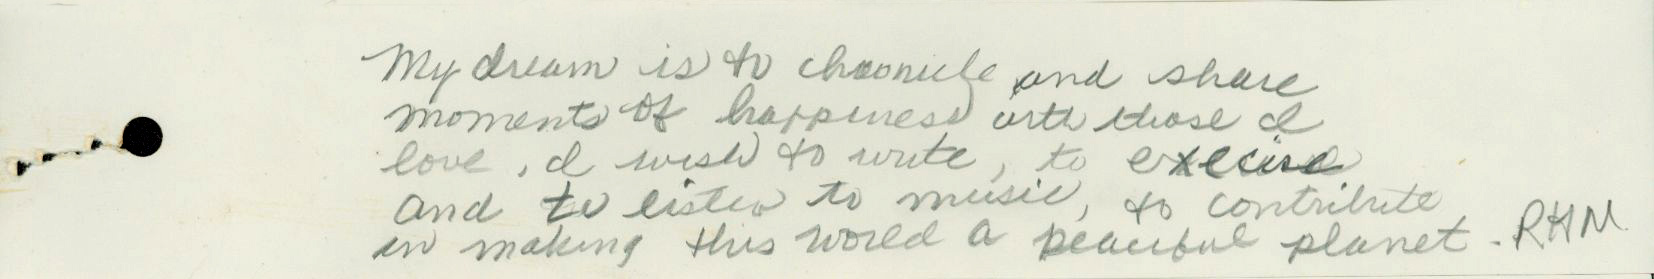 My dream is to chronicle and share
moments of happiness with those I
love. I wish to write, to execise
and to listen to music, to contribute
in making this world a peaceful planet - RHM